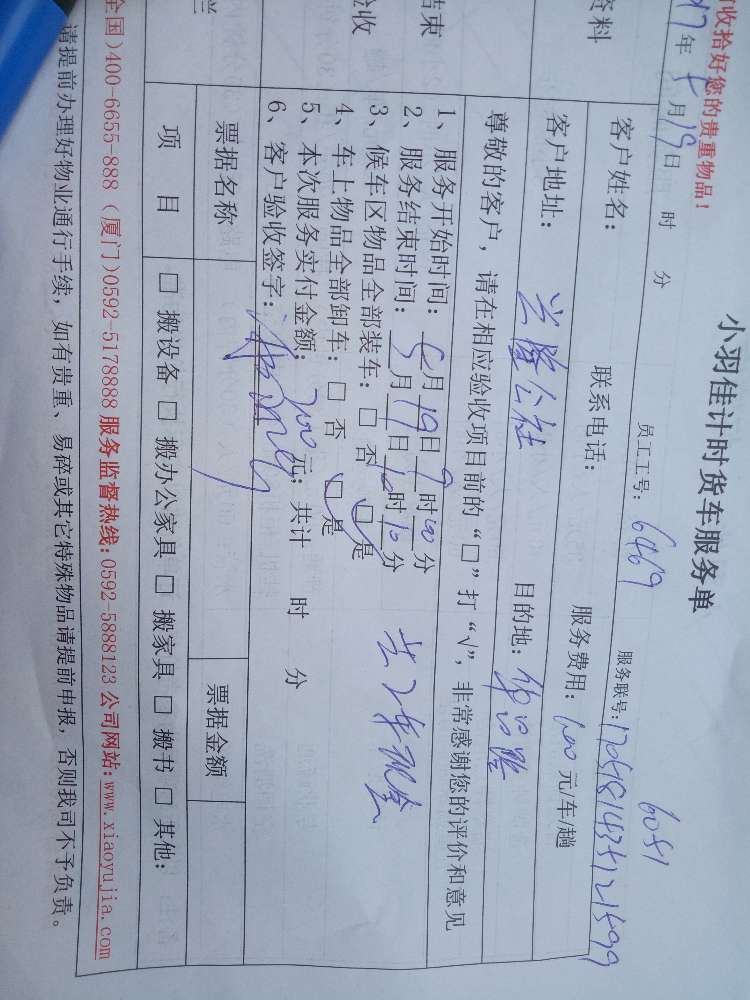 收拾好您的贵重物品!
小羽佳计时货车服务单
6051
17年5月19日 时 分 员工工号: 6469 服务联号:
资料
客户姓名: 联系电话: 服务费用: 100元/车/趟
客户地址: 兴隆公社 目的地:
尊敬的客户,请在相应验收项目前的“□”打“√”,非常感谢您的评价和意见
结束
验收
1、服务开始时间: 5月19日9时00分
2、服务结束时间: 5月19日10时10分
3、候车区物品全部装车: □ 否 □ 是
4、车上物品全部卸车: □ 否 □ 是
5、本次服务实付金额: 200元; 共计 时 分
6、客户验收签字:
票据名称 票据金额
项 目 □ 搬设备 □ 搬办公家具 □ 搬家具 □ 搬书 □ 其他:
全国)400-6655-888 (厦门)0592-5178888 服务监督热线:0592-5888123 公司网站:www.xiaoyujia.com
请提前办理好物业通行手续, 如有贵重、易碎或其它特殊物品请提前申报, 否则我司不予负责。